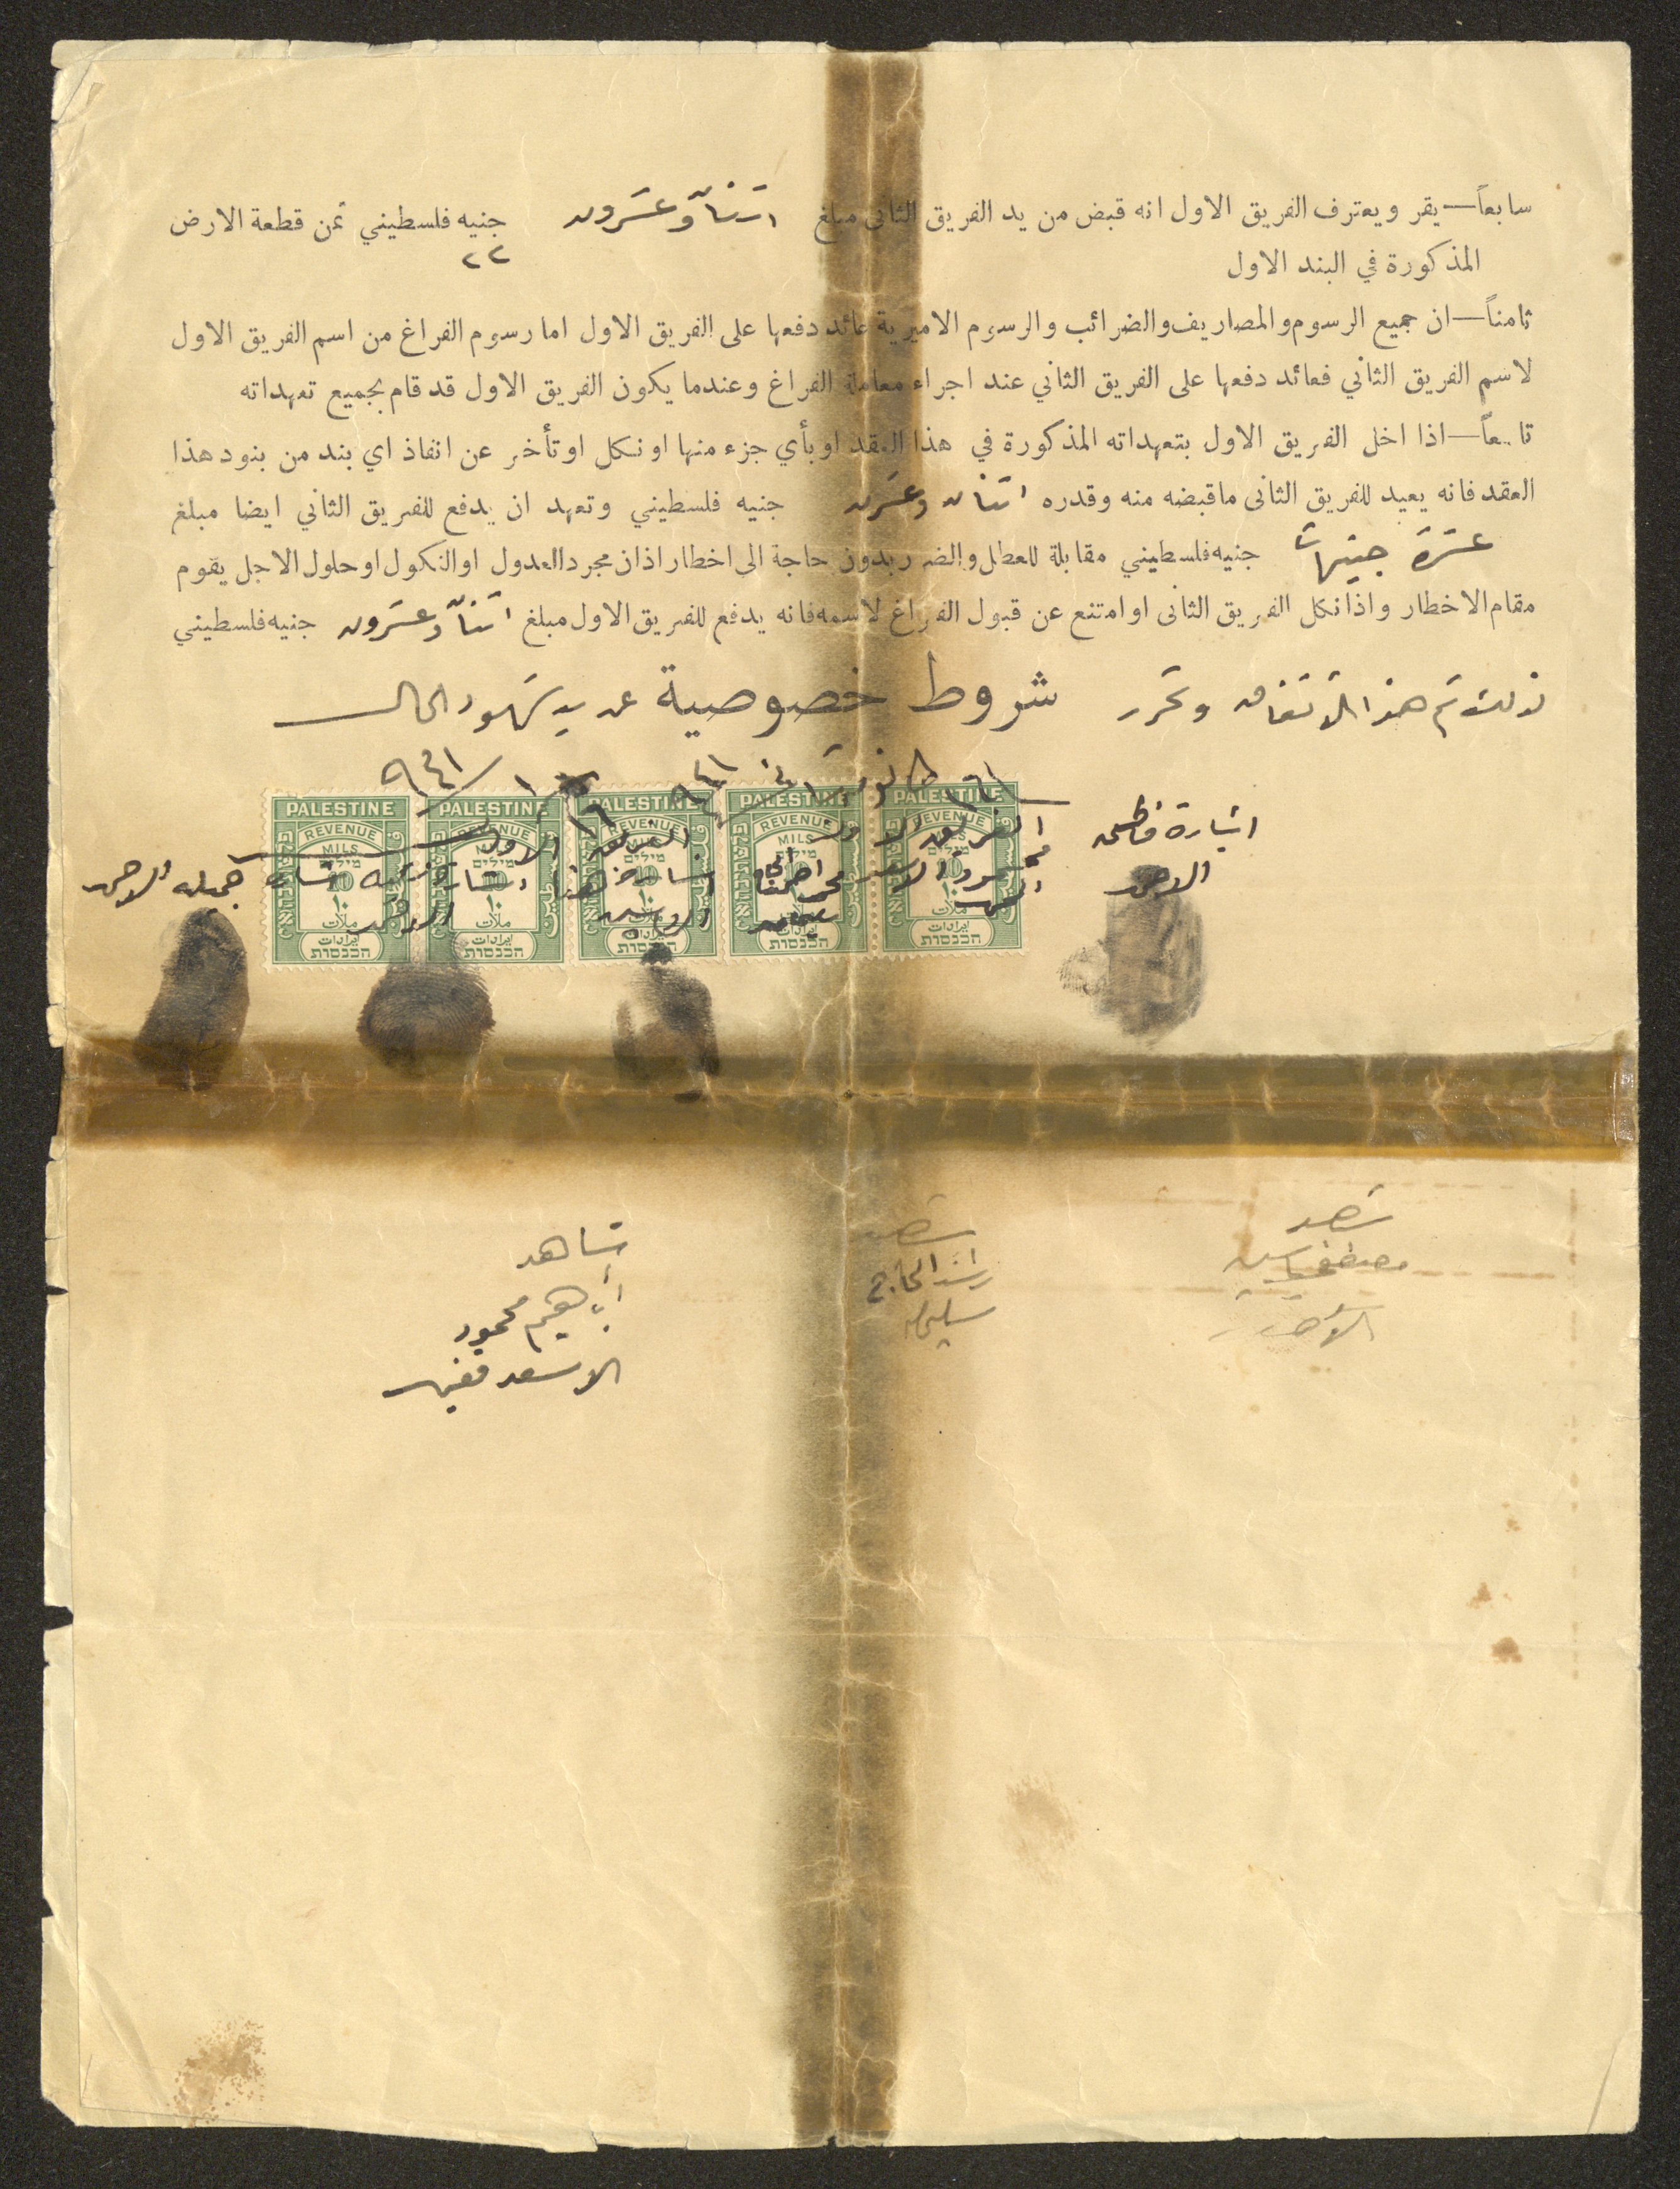 سابعاً — يقر ويعترف الفريق الاول انه قبض من يد الفريق الثاني مبلغ اثنان وعشرون جنيه فلسطيني ثمن قطعة الارض
٢٢
المذكورة في البند الاول
ثامناً — ان جميع الرسوم والمصاريف والضرائب والرسوم الاميرية عائد دفعها على الفريق الاول اما رسوم الفراغ من اسم الفريق الاول
لاسم الفريق الثاني فعائد دفعها على الفريق الثاني عند اجراء معاملة الفراغ وعندما يكون الفريق الاول قد قام بجميع تعهداته
تاسعاً — اذا اخل الفريق الاول بتعهداته المذكورة في هذا العقد او بأي جزء منها او نكل او تأخر عن انفاذ اي بند من بنود هذا
العقد فانه يعيد للفريق الثاني ما قبضه منه وقدره اثنان وعشرون جنيه فلسطيني وتعهد ان يدفع للفريق الثاني ايضا مبلغ
عشرة جنيهات جنيه فلسطيني مقابلة للعطل والضرر بدون حاجة الى اخطار اذ ان مجرد العدول او النكول او حلول الاجل يقوم
مقام الاخطار واذا نكل الفريق الثاني او امتنع عن قبول الفراغ لاسمه فانه يدفع للفريق الاول مبلغ اثنان وعشرون جنيه فلسطيني
شروط خصوصية
لذلك تم هذا الاتفاق وتحرر عن يد شهود الحال
١٦ / ١ / ٩٤١
PALESTINE PALESTINE PALESTINE PALESTINE PALESTINE
REVENUE REVENUE REVENUE REVENUE REVENUE
MILS
מילים
10
١٠
ملات
ايرادات
הכנסות
الفريق الاول
اشارة فاطمه
الاحمد
محمود الاسعد
جميله الاحمد
شهد
مصطفى
شهد
راشد الحاج
سليمان
شاهد
ابراهيم محمود
الاسعد